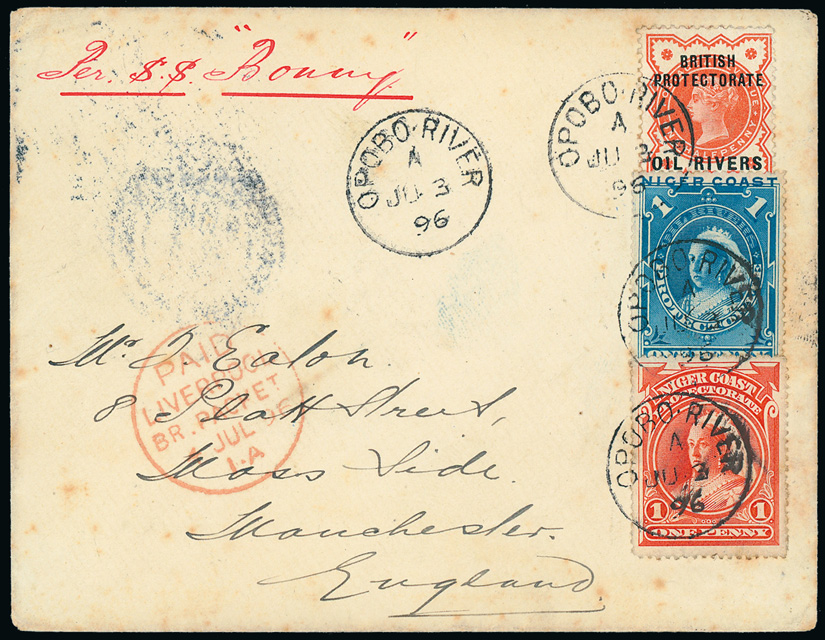 Per. S.S "Bonny"
OPOBO·RIVER
A
JU 3
96
OPOBO·RIVER
A
JU 3
96
BRITISH
PROTECTORATE
HALFPENNY
OIL RIVERS
NIGER COAST
1 1
OPOBO·RIVER
A
JU 3
96
PAID
LIVERPOOL
BR. PACKET
JUL 96
1.A
Mr J. Eaton.
8 Platt Street,
Moss Side.
Manchester.
England
NIGER COAST
PROTECTORATE
OPOBO·RIVER
A
JU 3
96
1 1
ONE PENNY